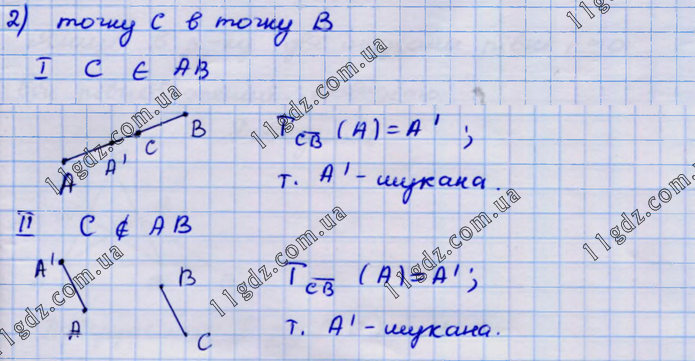 2) точку С в точку В
I С ∈ АВ
А А' С В
T_CB (А) = А' ;
т. А' - шукана.
II С ∉ АВ
А' А В С
T_CB (А) = А' ;
т. А' - шукана.
11gdz.com.ua
11gdz.com.ua
11gdz.com.ua
11gdz.com.ua
11gdz.com.ua
11gdz.com.ua
11gdz.com.ua